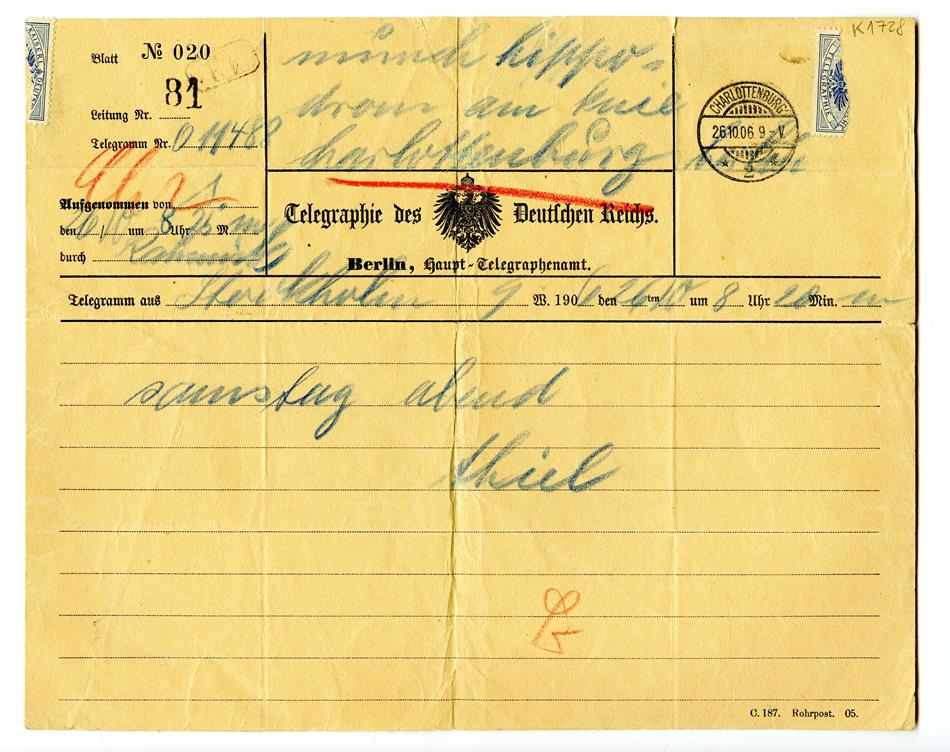 K1728
Blatt № 020
81
Leitung Nr.
Telegramm Nr. 011488
Aufgenommen von
den 26/10 um 8 Uhr 25 M.
durch
munch hippo=
drom am knie
charlottenburg
CHARLOTTENBURG
26.10.06. 9 - V.
2
Telegraphie des Deutschen Reichs.
Berlin, Haupt-Telegraphenamt.
Telegramm aus Stockholm 9 W. 1906 den 26/10 ten um 8 Uhr 20 Min. m
samstag abend
thiel
C. 187. Rohrpost. 05.